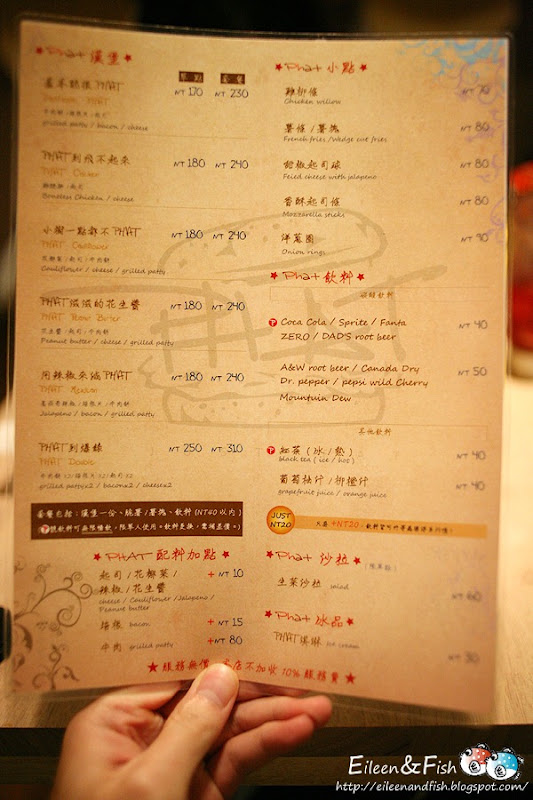 ★ Phat 漢堡 ★
單點 套餐
NT 170 NT 230
grilled patty / bacon / cheese
PHAT 到飛不起來
NT 180 NT 240
PHAT Chicken
Boneless Chicken / cheese
小獅一點都不 PHAT
NT 180 NT 240
PHAT Cauliflower
花椰菜 / 起司 / 牛肉餅
Cauliflower / cheese / grilled patty
PHAT 滋滋的花生醬
NT 180 NT 240
PHAT Peanut Butter
花生醬 / 起司 / 牛肉餅
Peanut butter / cheese / grilled patty
用辣椒來減 PHAT
NT 180 NT 240
PHAT Mexican
Jalapeno / bacon / grilled patty
PHAT 到爆錶
NT 250 NT 310
PHAT Double
牛肉餅 X2 / 培根片 X2 / 起司 X2
grilled pattyx2 / baconx2 / cheesex2
套餐包括：漢堡一份、脆薯 / 薯塊、飲料 (NT40 以內)
★ PHAT 配料加點 ★
起司 / 花椰菜 /
辣椒 / 花生醬
+ NT 10
cheese / Cauliflower / Jalapeno /
Peanut butter
培根 bacon + NT 15
牛肉 grilled patty + NT 80
★ Phat 小點 ★
雞柳條 NT 70
Chicken willow
薯條 / 薯塊 NT 80
French fries / Wadge cut fries
甜椒起司球 NT 80
Feied cheese with jalapeno
香酥起司條 NT 80
Mozzarella sticks
洋蔥圈 NT 90
Onion rings
★ Phat 飲料
碳酸飲料
Coca Cola / Sprite / Fanta
ZERO / DAD'S root beer
NT 40
A&W root beer / Canada Dry
Dr. pepper / pepsi wild Cherry
Mountuin Dew
NT 50
其他飲料
紅茶 ( 冰 / 熱 ) NT 40
black tea ( ice / hot )
葡萄柚汁 / 柳橙汁 NT 40
grapefruit juice / orange juice
JUST
NT20
+NT20
★ Phat 沙拉
生菜沙拉 salad NT 60
★ Phat 冰品
PHAT 淇淋 ice cream NT 30
★ 服務無價 本店不加收 10% 服務費 ★
Eileen&Fish
http://eileenandfish.blogspot.com/